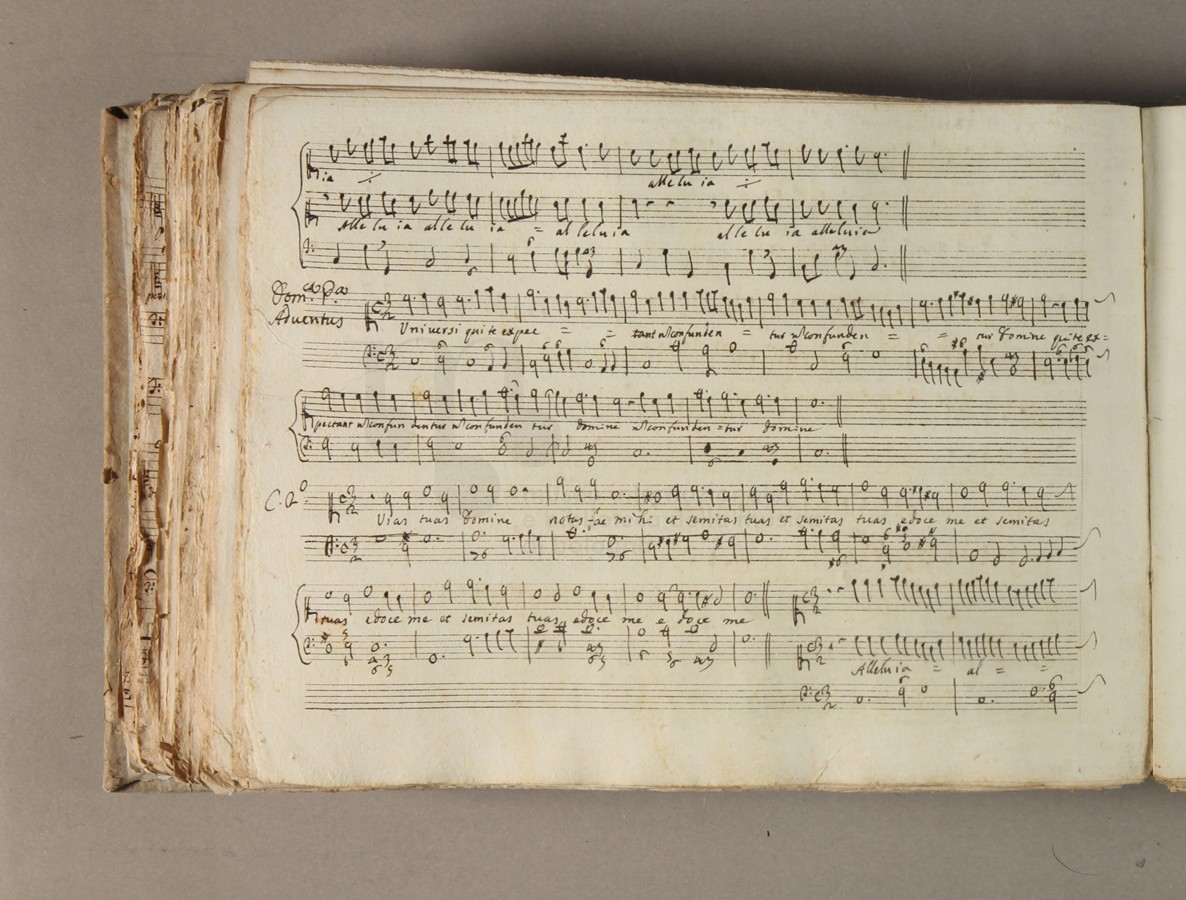 ia alleluia
Alleluia alleluia = alleluia alleluia alleluia
Dom.ca P.a
Adventus
Universi qui te expec = = tant non confunden = tur non confunden = = tur Domine qui te ex=
pectant non confundentur non confundentur Domine non confunden=tur Domine
C. 2o
Vias tuas Domine notas fac mihi et semitas tuas et semitas tuas edoce me et semitas
tuas edoce me et semitas tuas edoce me edoce me
Alleluia = al = =